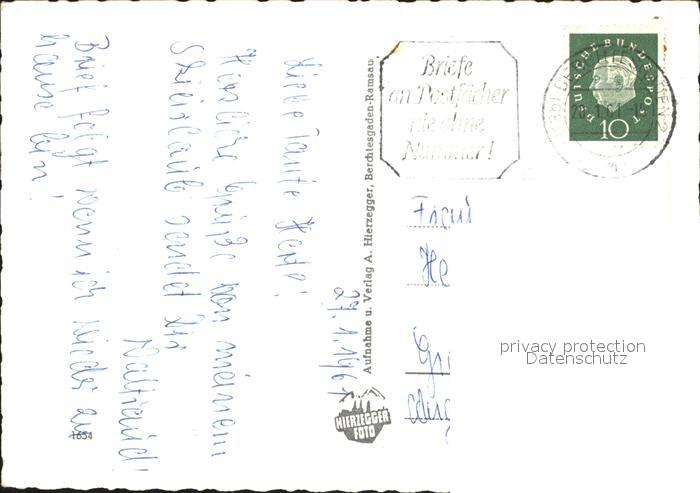 27.1.1961
Liebe Tante Hete!
Herzliche Grüße von meinem
Skiurlaub sendet Dir
Waltraud!
Brief folgt wenn ich wieder zu
hause bin!
1654
Aufnahme u. Verlag A. Hierzegger, Berchtesgaden-Ramsau
HIERZEGGER
FOTO
Briefe
an Postfächer
nie ohne
Nummer!
DEUTSCHE BUNDESPOST
10
Frau
He
privacy protection
Datenschutz